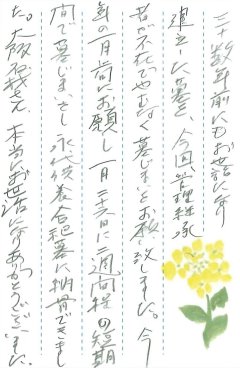 三十数年前にもお世話になり
建立した墓を、今回管理継承
者が不在でやむなく墓じまいをお願い致しました。今
年の一月にお願いし一月二十六日に二週間程の短期
間で墓じまいをし永代供養合祀墓に納骨できまし
た。大阪石材さん、本当にお世話になりありがとうございました。